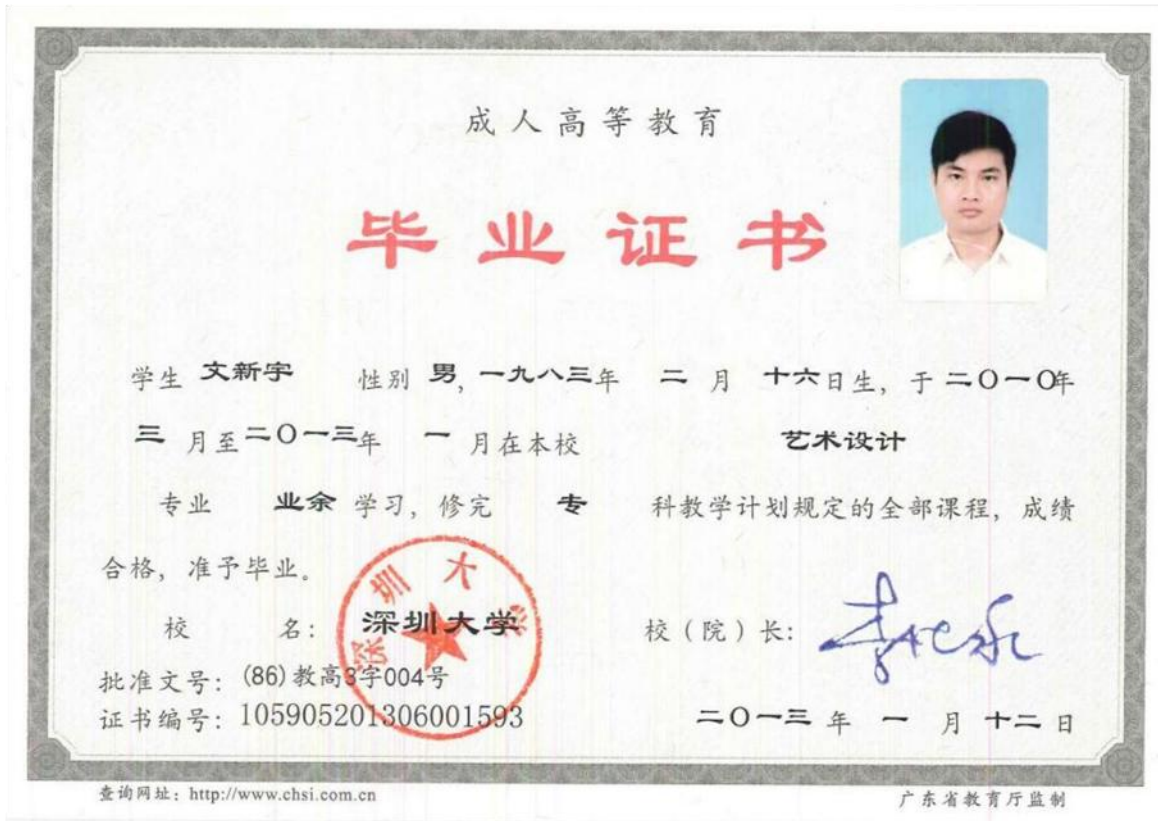 成人高等教育
毕业证书
学生 文新宇 性别 男,一九八三年 二 月 十六日生,于二〇一〇年
三 月至二〇一三年 一 月在本校 艺术设计
专业 业余 学习,修完 专 科教学计划规定的全部课程,成绩
合格,准予毕业。
深圳大学
校 名: 深圳大学 校(院)长:
批准文号:(86)教高3字004号
证书编号:105905201306001593 二〇一三 年 一 月 十二 日
查询网址:http://www.chsi.com.cn 广东省教育厅监制